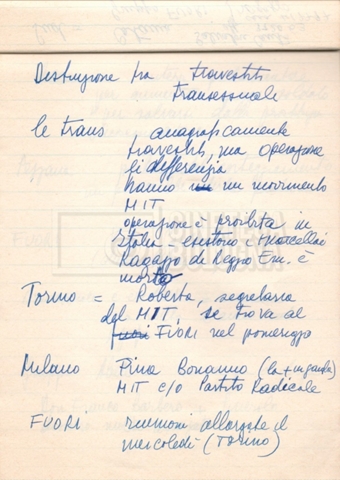 Distinzione fra travestiti
transessuale
le trans anagraficamente
travestiti, ma operazione
li differenzia
hanno un movimento
MIT
operazione è proibita in
Italia esistono i macellai
Ragazzo di Reggio Em. è
morto
Torino = Roberta, segretaria
del MIT, se trova al
FUORI nel pomeriggio
Milano Pina Bonanno (la + in gamba)
MIT c/o Partito Radicale
FUORI riunioni allargate il
mercoledì (Torino)